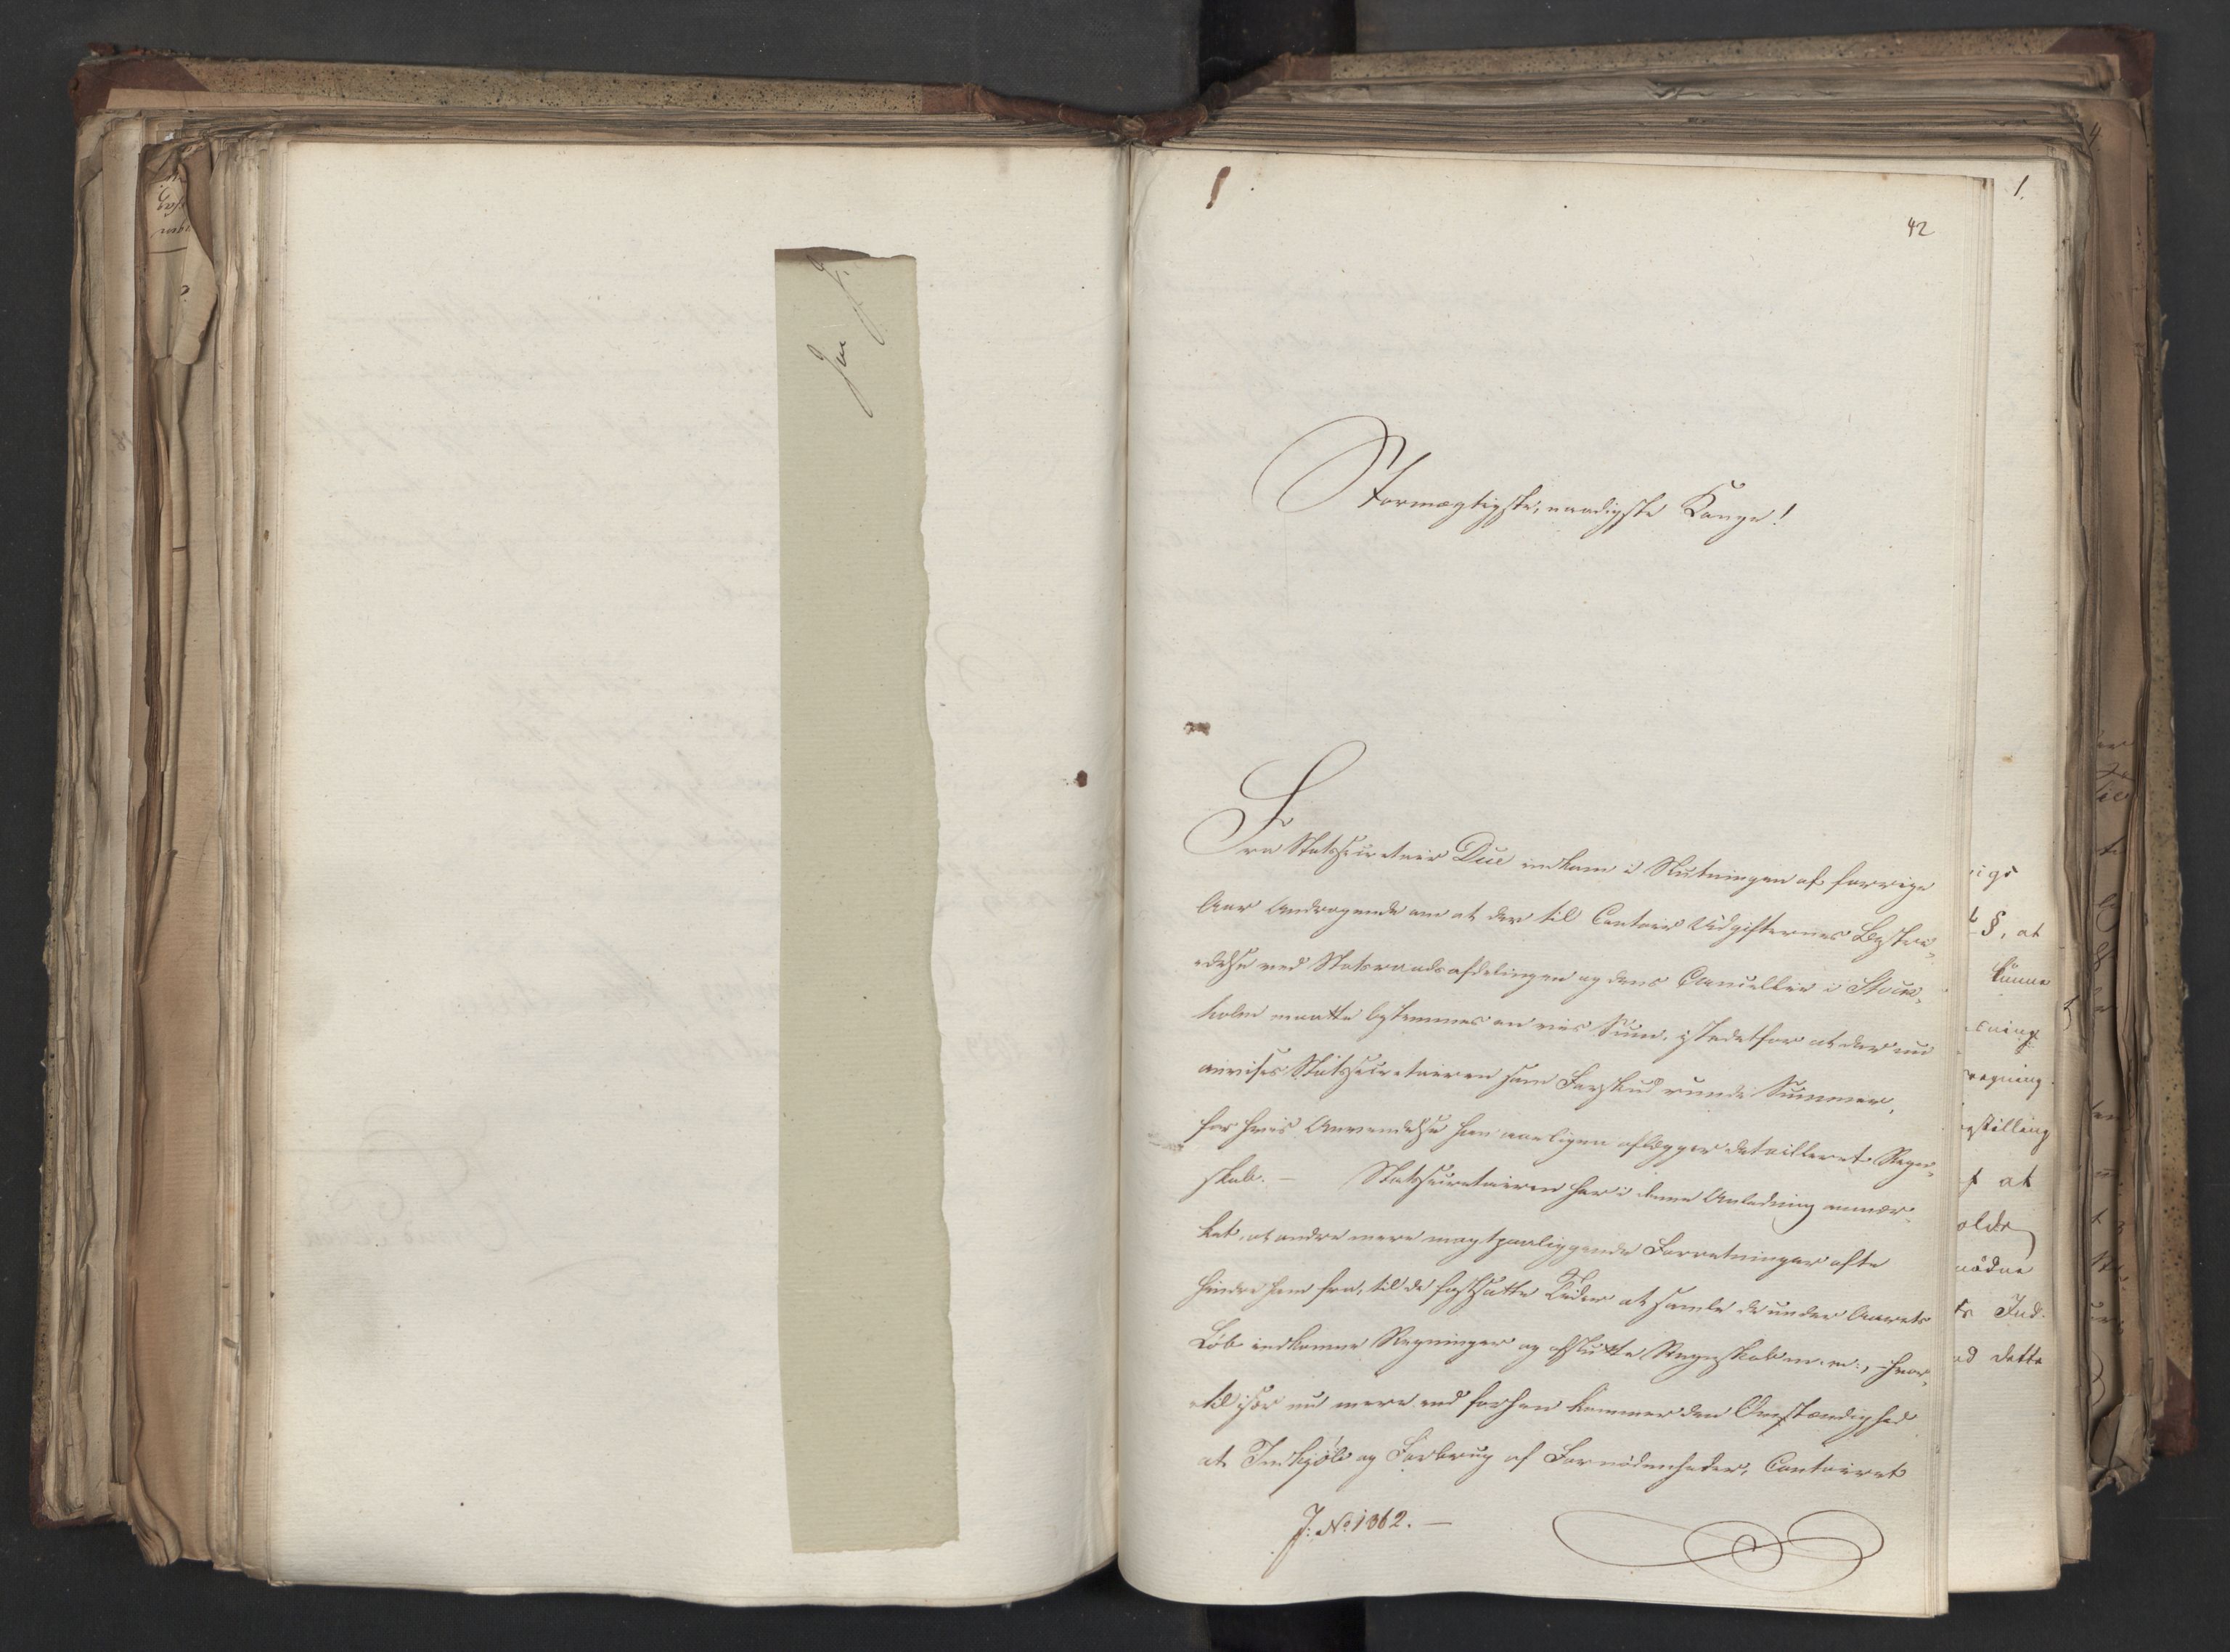 42
1.
Stormægtigste, naadigste Konge!
Fra Statssecretair Due indkom i Slutningen af forrige
Aar Andragende om at der til Contoir Udgifternes Bestri-
delse ved Statsraadsafdelingen og dens Cancellie i Stock-
holm maatte bestemmes en vis Sum, istedetfor at der nu
anvises Statssecretairen som Forskud runde Summer,
for hvis Anvendelse han aarligen aflægger detailleret Regn-
skab. – Statssecretairen har i denne Anledning anmær-
ket, at andre mere magtpaaliggende Forretninger ofte
hindre ham fra, til de fastsatte Tider at samle de under Aarets
Løb indkomne Regninger og afslutte Regnskabet m. m., hvor-
til især nu mere end forhen kommer den Omstændighed
at Indkjøb og Forbrug af Fornødenheder, Contoiret
J: No 1062. –
§, at
kunne
at
dette